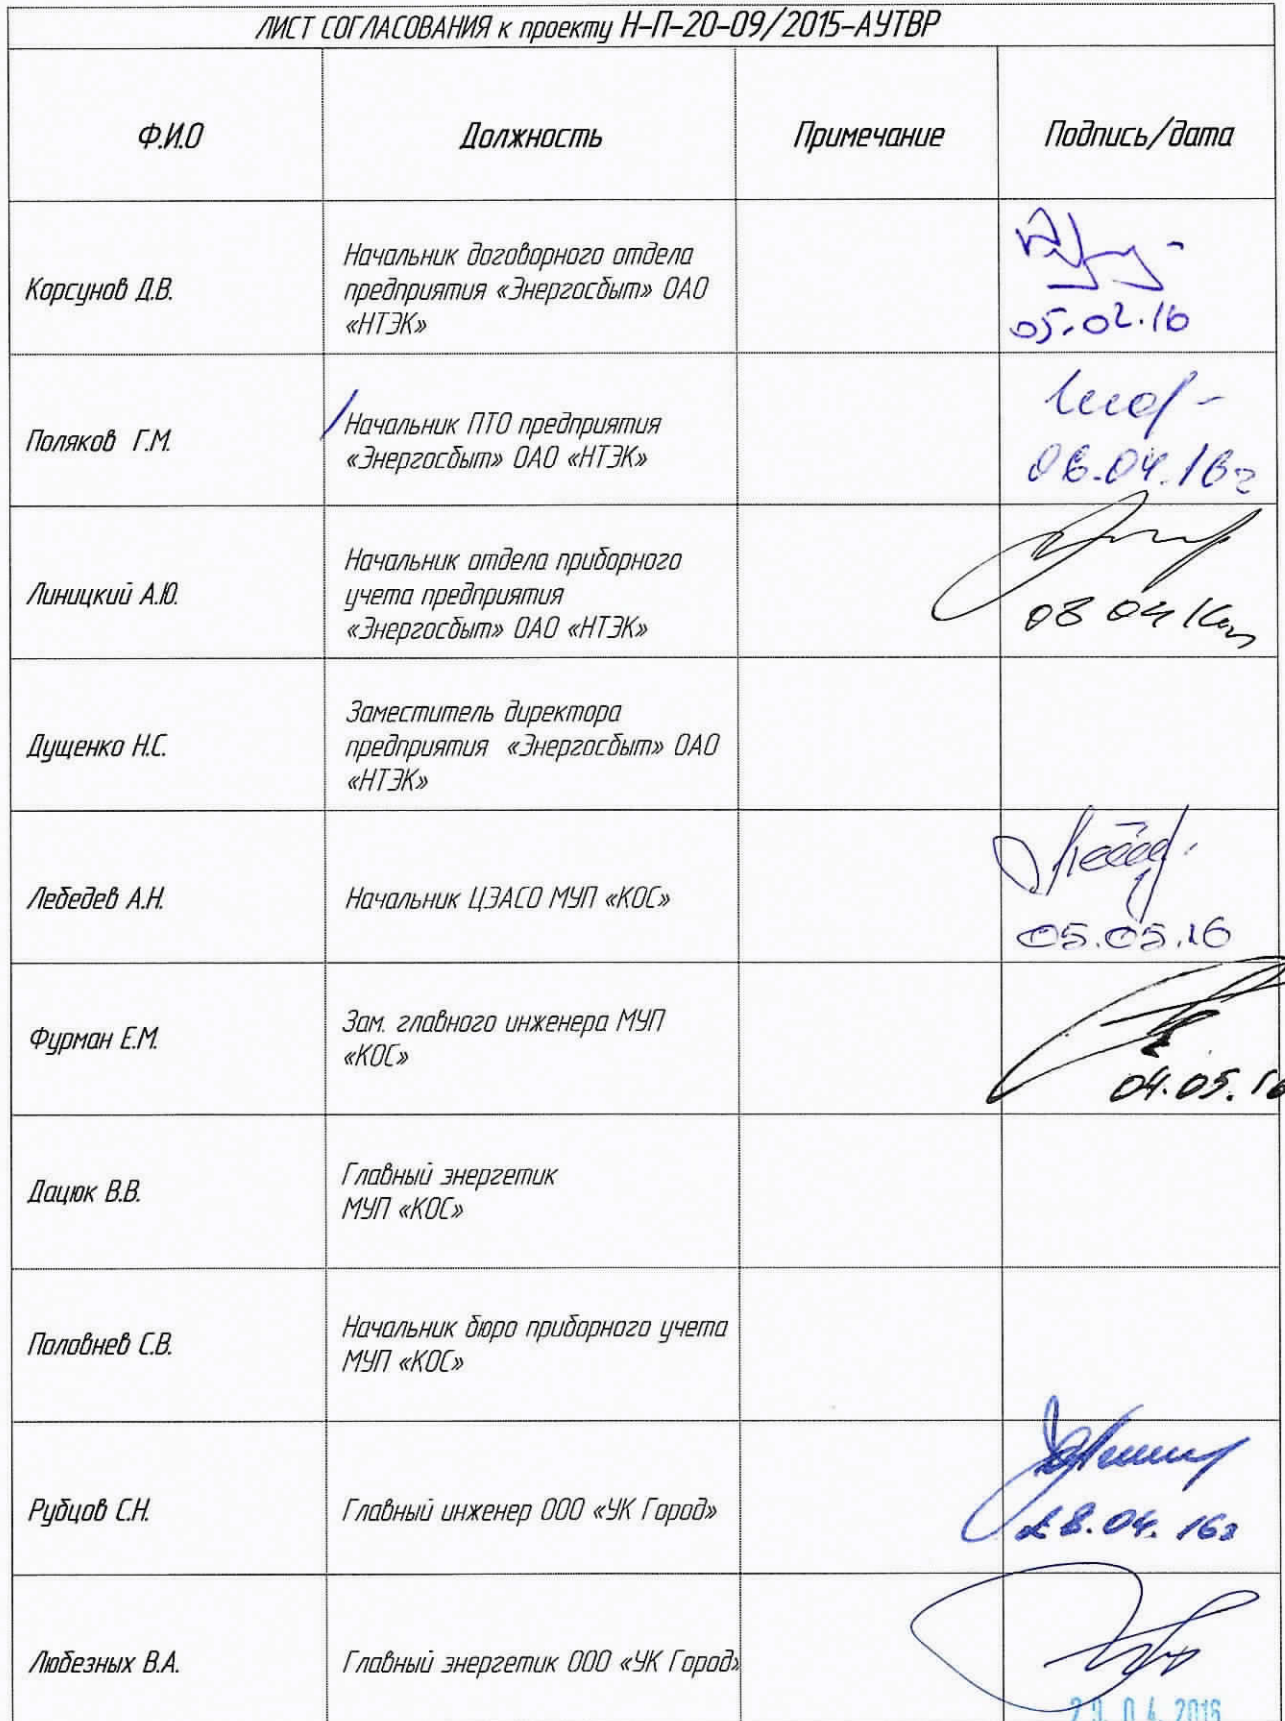 ЛИСТ СОГЛАСОВАНИЯ к проекту Н-П-20-09/2015-АУТВР
Ф.И.О Должность Примечание Подпись/дата
Корсунов Д.В.
Начальник договорного отдела
предприятия «Энергосбыт» ОАО
«НТЭК»
05.02.16
Поляков Г.М.
Начальник ПТО предприятия
«Энергосбыт» ОАО «НТЭК»
06.04.16г
Линицкий А.Ю.
Начальник отдела приборного
учета предприятия
«Энергосбыт» ОАО «НТЭК»
08 04 16г
Дущенко Н.С.
Заместитель директора
предприятия «Энергосбыт» ОАО
«НТЭК»
Лебедев А.Н.
Начальник ЦЭАСО МУП «КОС»
05.05.16
Фурман Е.М.
Зам. главного инженера МУП
«КОС»
04.05.16
Дацюк В.В.
Главный энергетик
МУП «КОС»
Половнев С.В.
Начальник бюро приборного учета
МУП «КОС»
Рубцов С.Н.
Главный инженер ООО «УК Город»
28.04.16г
Любезных В.А.
Главный энергетик ООО «УК Город»
29.04.2016